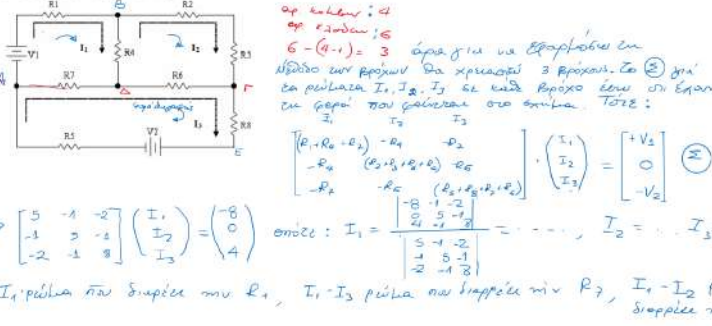 R1 B R2
V1 I₁ R4 I₂ R3
R7 Δ R6 Γ
I₃ R8
R5 V2 E
αρ. κόμβων : 4
αρ. κλάδων : 6
6 - (4-1) = 3 άρα για να εφαρμόσω τη
μέθοδο των βρόχων θα χρειαστώ 3 βρόχους. Το Σ για
τα ρεύματα I₁, I₂, I₃ σε κάθε βρόχο έτσι ώστε
τη φορά που φαίνεται στο σχήμα. Τότε :
I₁ I₂ I₃
[(R₁+R₄+R₇) -R₄ -R₇] (I₁) [+V₁]
[-R₄ (R₂+R₃+R₆+R₄) -R₆] · (I₂) = [0] Σ
[-R₇ -R₆ (R₅+R₈+R₇+R₆)] (I₃) [-V₂]
[5 -1 -2] (I₁) (-8) |-8 -1 -2|
[-1 5 -1] (I₂) = (0) οπότε : I₁ = |0 5 -1| = ----- , I₂ = .. I₃
[-2 -1 8] (I₃) (4) |4 -1 8|
|5 -1 -2|
|-1 5 -1|
|-2 -1 8|
I₁ ρεύμα που διαρρέει την R₁ , I₁-I₃ ρεύμα που διαρρέει την R₇ , I₁-I₂
διαρρέει